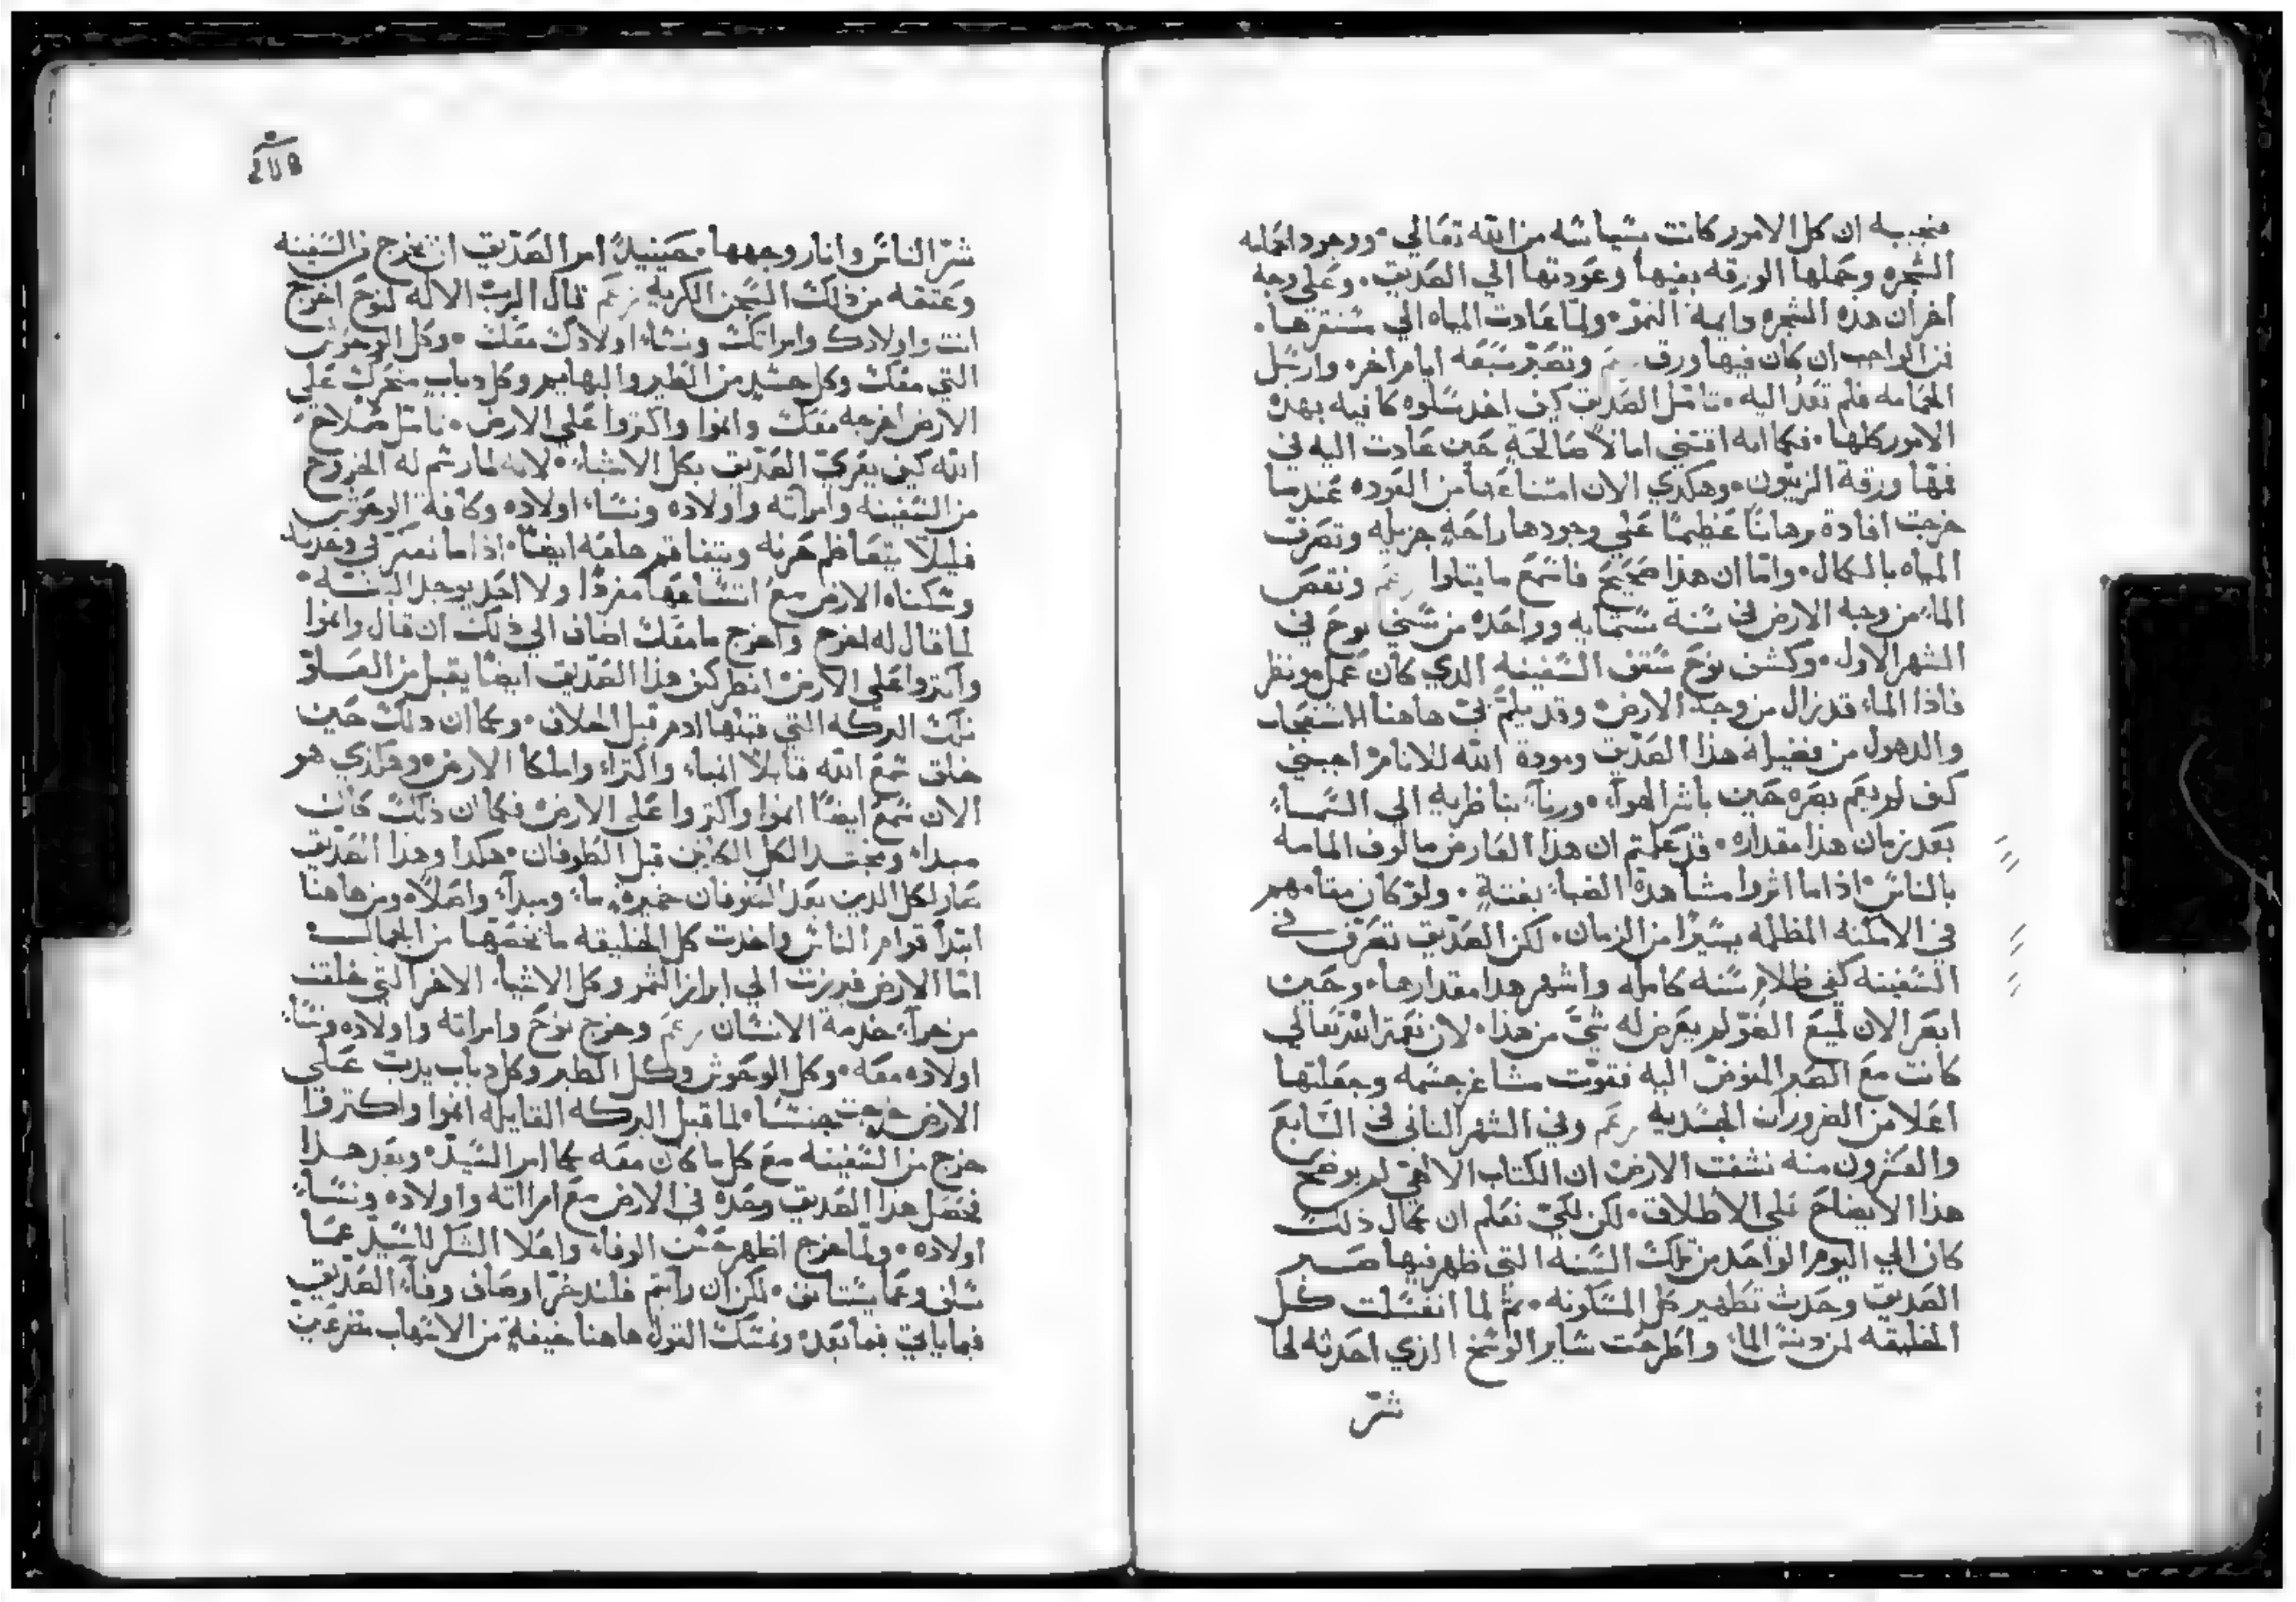 فنجيبه ان كل الامور كانت بسياسه من الله تعالي. ووجود الحمامه
الشجره وحملها الورقه بفيها وعودتها الي الصديق. وعلي وجه
اخر ان هذه الشجره دايمة النمو. ولما عادت المياه الي مستقرها.
فمن الواجب ان كان فيها ورق وتصبر سبعه ايام اخر. وارسل
الحمامه فلم تعد اليه. تامل الصديق كيف اخد سلوه كافيه بهده
الامور كلها. فكما انه اقتني امالا صالحة حين عادت اليه في
فمها ورقة الزيتون. وهكدي الان امتناعها من العوده عندما
خرجت افادة برهانا عظيما علي وجودها راحة جزيله وتصرفت
المياه بالكمال. واما ان هذا صحيح فاسمع ما يتلوا زعم ونقص
الماء من وجه الارض في سنه ستمايه وواحده من سني نوح في
الشهر الاول. وكشف نوح سقف السفينه الدي كان عمل ونظر
فاذا الماء قد زال من وجه الارض وقد يلم بي هاهنا الاستعجاب
والدهول من فضيلة هذا الصديق ومودة الله للانام اجبني
كيف لم يعم بصره حين باشر الهواء. ورنا بناظريه الي السماء
بعد زمان هذا مقداره. قد علمتم ان هذا العارض مالوف المامه
بالناس اذا ما اثروا مشاهدة الضياء بغتة. ولو كان مقامهم
في الامكنه المظلمه يسيرا من الزمان. لكن الصديق تصرف في
السفينه كفي ظلام سنه كامله واشهر هدا مقدارها. وحين
ابصر الان لميع الضو لم يعرض له شي من هذا. لان نعمة الله تعالي
كانت مع الصبر المفوض اليه فقوت مشاعر جسمه وجعلتها
اعلا من الضرورات الجسديه زعم وفي الشهر الثاني في السابع
والعشرون منه نشفت الارض ان الكتاب الالاهي لم يوضح
هذا الايضاح علي الاطلاق. لكن لكي نعلم ان كمال ذلك
كان الي اليوم الواحد من تلك السنه التي ظهر فيها صبر
الصديق وحدث تطهير كل المسكونه. ثم لما انغسلت كل
الخليقه لمن دنس الماء واطرحت ساير الوسخ الذي احدثه لها
شر
شر الناس وانار وجهها. حينيدا امر الصديق ان يخرج من السفينه
وعتقه من ذلك السجن الكريه زعم قال الرب الاله لنوح اخرج
انت واولادك وامراتك ونساء اولادك معك. وكل الوحوش
التي معك وكل جسد من الطير والبهايم وكل دباب متحرك علي
الارض اخرجه معك وانموا واكتروا علي الارض. تامل صلاح
الله كيف يعزي الصديق بكل الاشياء. لانه لما رسم له الخروج
من السفينه وامراته واولاده ونساء اولاده وكافة الوحوش
قليلا يتعاظم حزنه ويتفاقم هلعه ايضا. اذا ما تفكر في وحدته
وسكناه الارض مع اتساعها مفردا ولا احد يوجد البته.
لما قال له اخرج واخرج ما معك اضاف الي ذلك ان قال وانموا
واكتروا علي الارض انظر كيف هذا الصديق ايضا يقبل من العلو
تلك البركه التي قبلها ادم قبل الخلاف. وكما ان دلك حين
خلق سمع الله قايلا انميا واكترا واملكا الارض وهكذي هو
الان سمع ايضا انموا واكتروا علي الارض فكما ان ذلك كان
مبدا ومحتدا لكل الكاينين قبل الطوفان. هكدا وهذا الصديق
صار لكل الدين بعد الطوفان خميره ما ومبدا واصلا. ومن هاهنا
ابتدا قوام الناس واخدت كل الخليقه ما يخصها من الجمال
اما الارض فبرزت الي ابراز الثمر وكل الاشياء الاخر التي خلقت
من جراء خدمة الانسان زعم وخرج نوح وامراته واولاده ونساء
اولاده معه. وكل الوحوش وكل الطير وكل دباب يدب علي
الارض خرجت جنسا. لما قبل البركه القايله انموا واكتروا
خرج من السفينه مع كل ما كان معه كما امر السيد. وبعد هدا
فحصل هدا الصديق وحده في الارض مع امراته واولاده ونساء
اولاده. ولما خرج اظهر حسن الوفاء واهلا الشكر للسيد عما
سلف وعما يستانف. لكن ان رايتم فلندخر اوصاف وفاء الصديق
فيما ياتي فما بعده ونمسك القول هاهنا خيفة من الاسهاب متضرعين